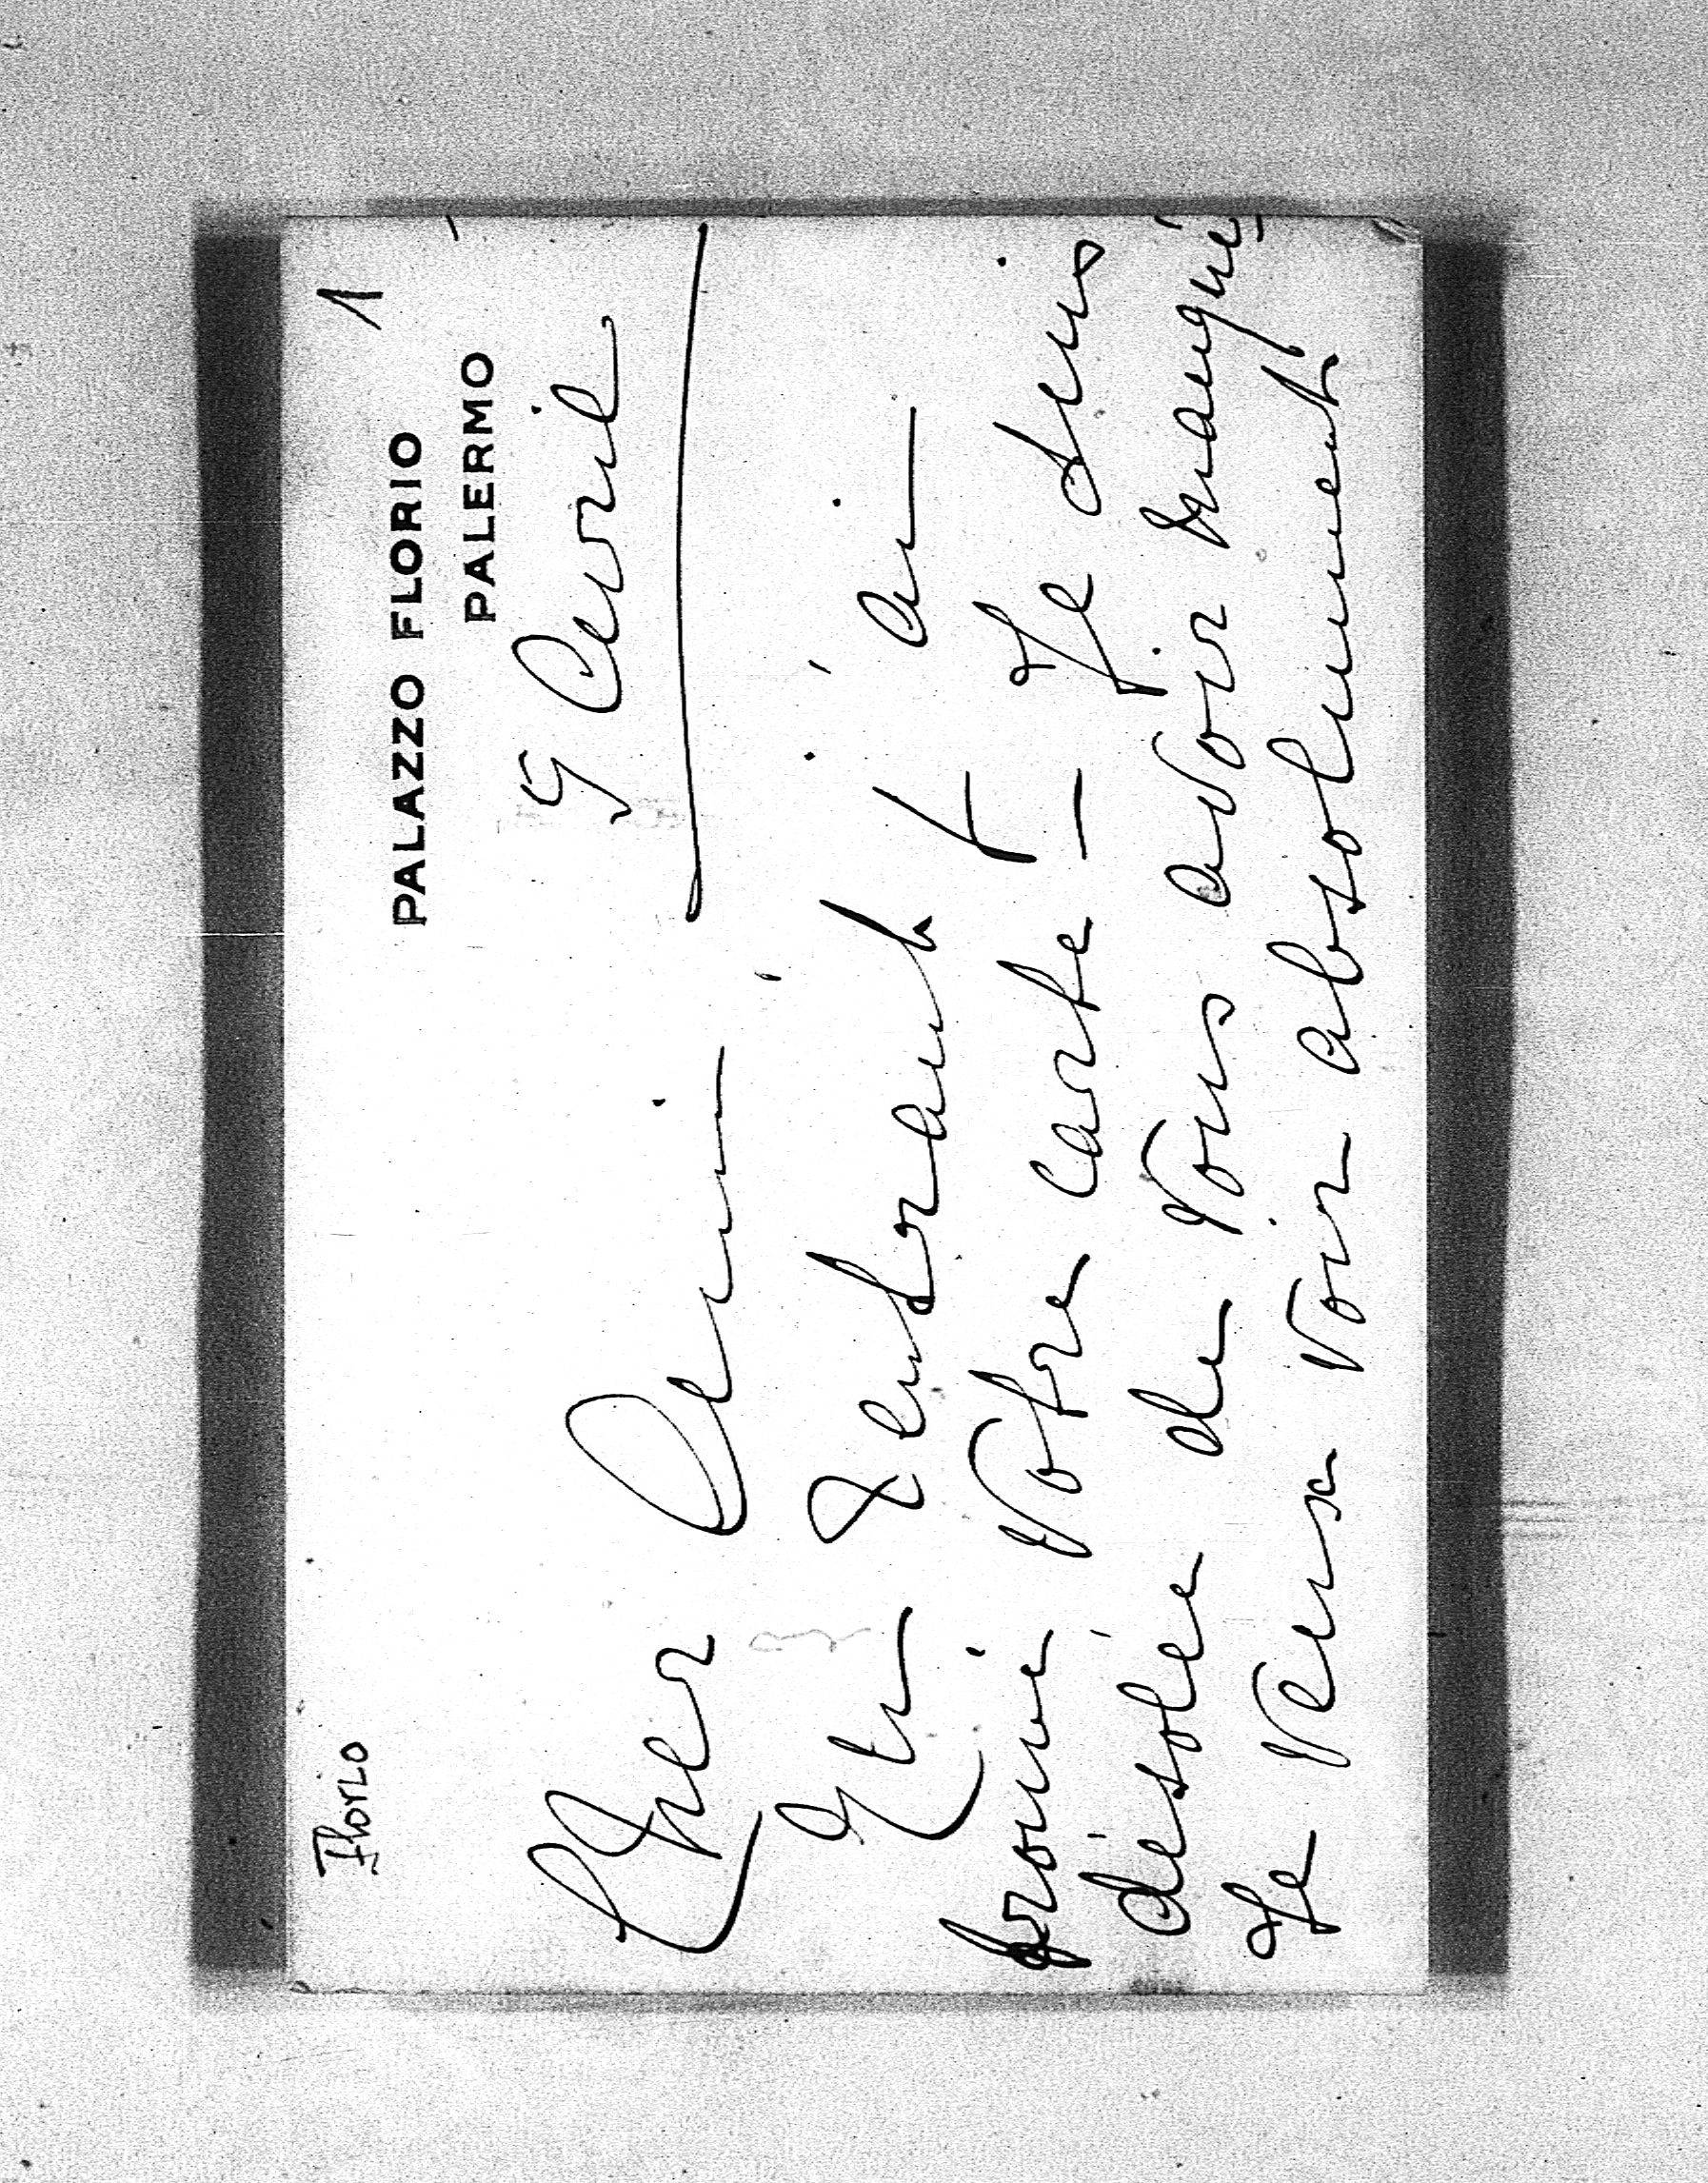 Florio
1
PALAZZO FLORIO
PALERMO
5 Avril
Cher Ami
En rentrant j'ai
trouvé votre carte — Je suis
désolée de vous avoir manqué
Je veux voir absolument